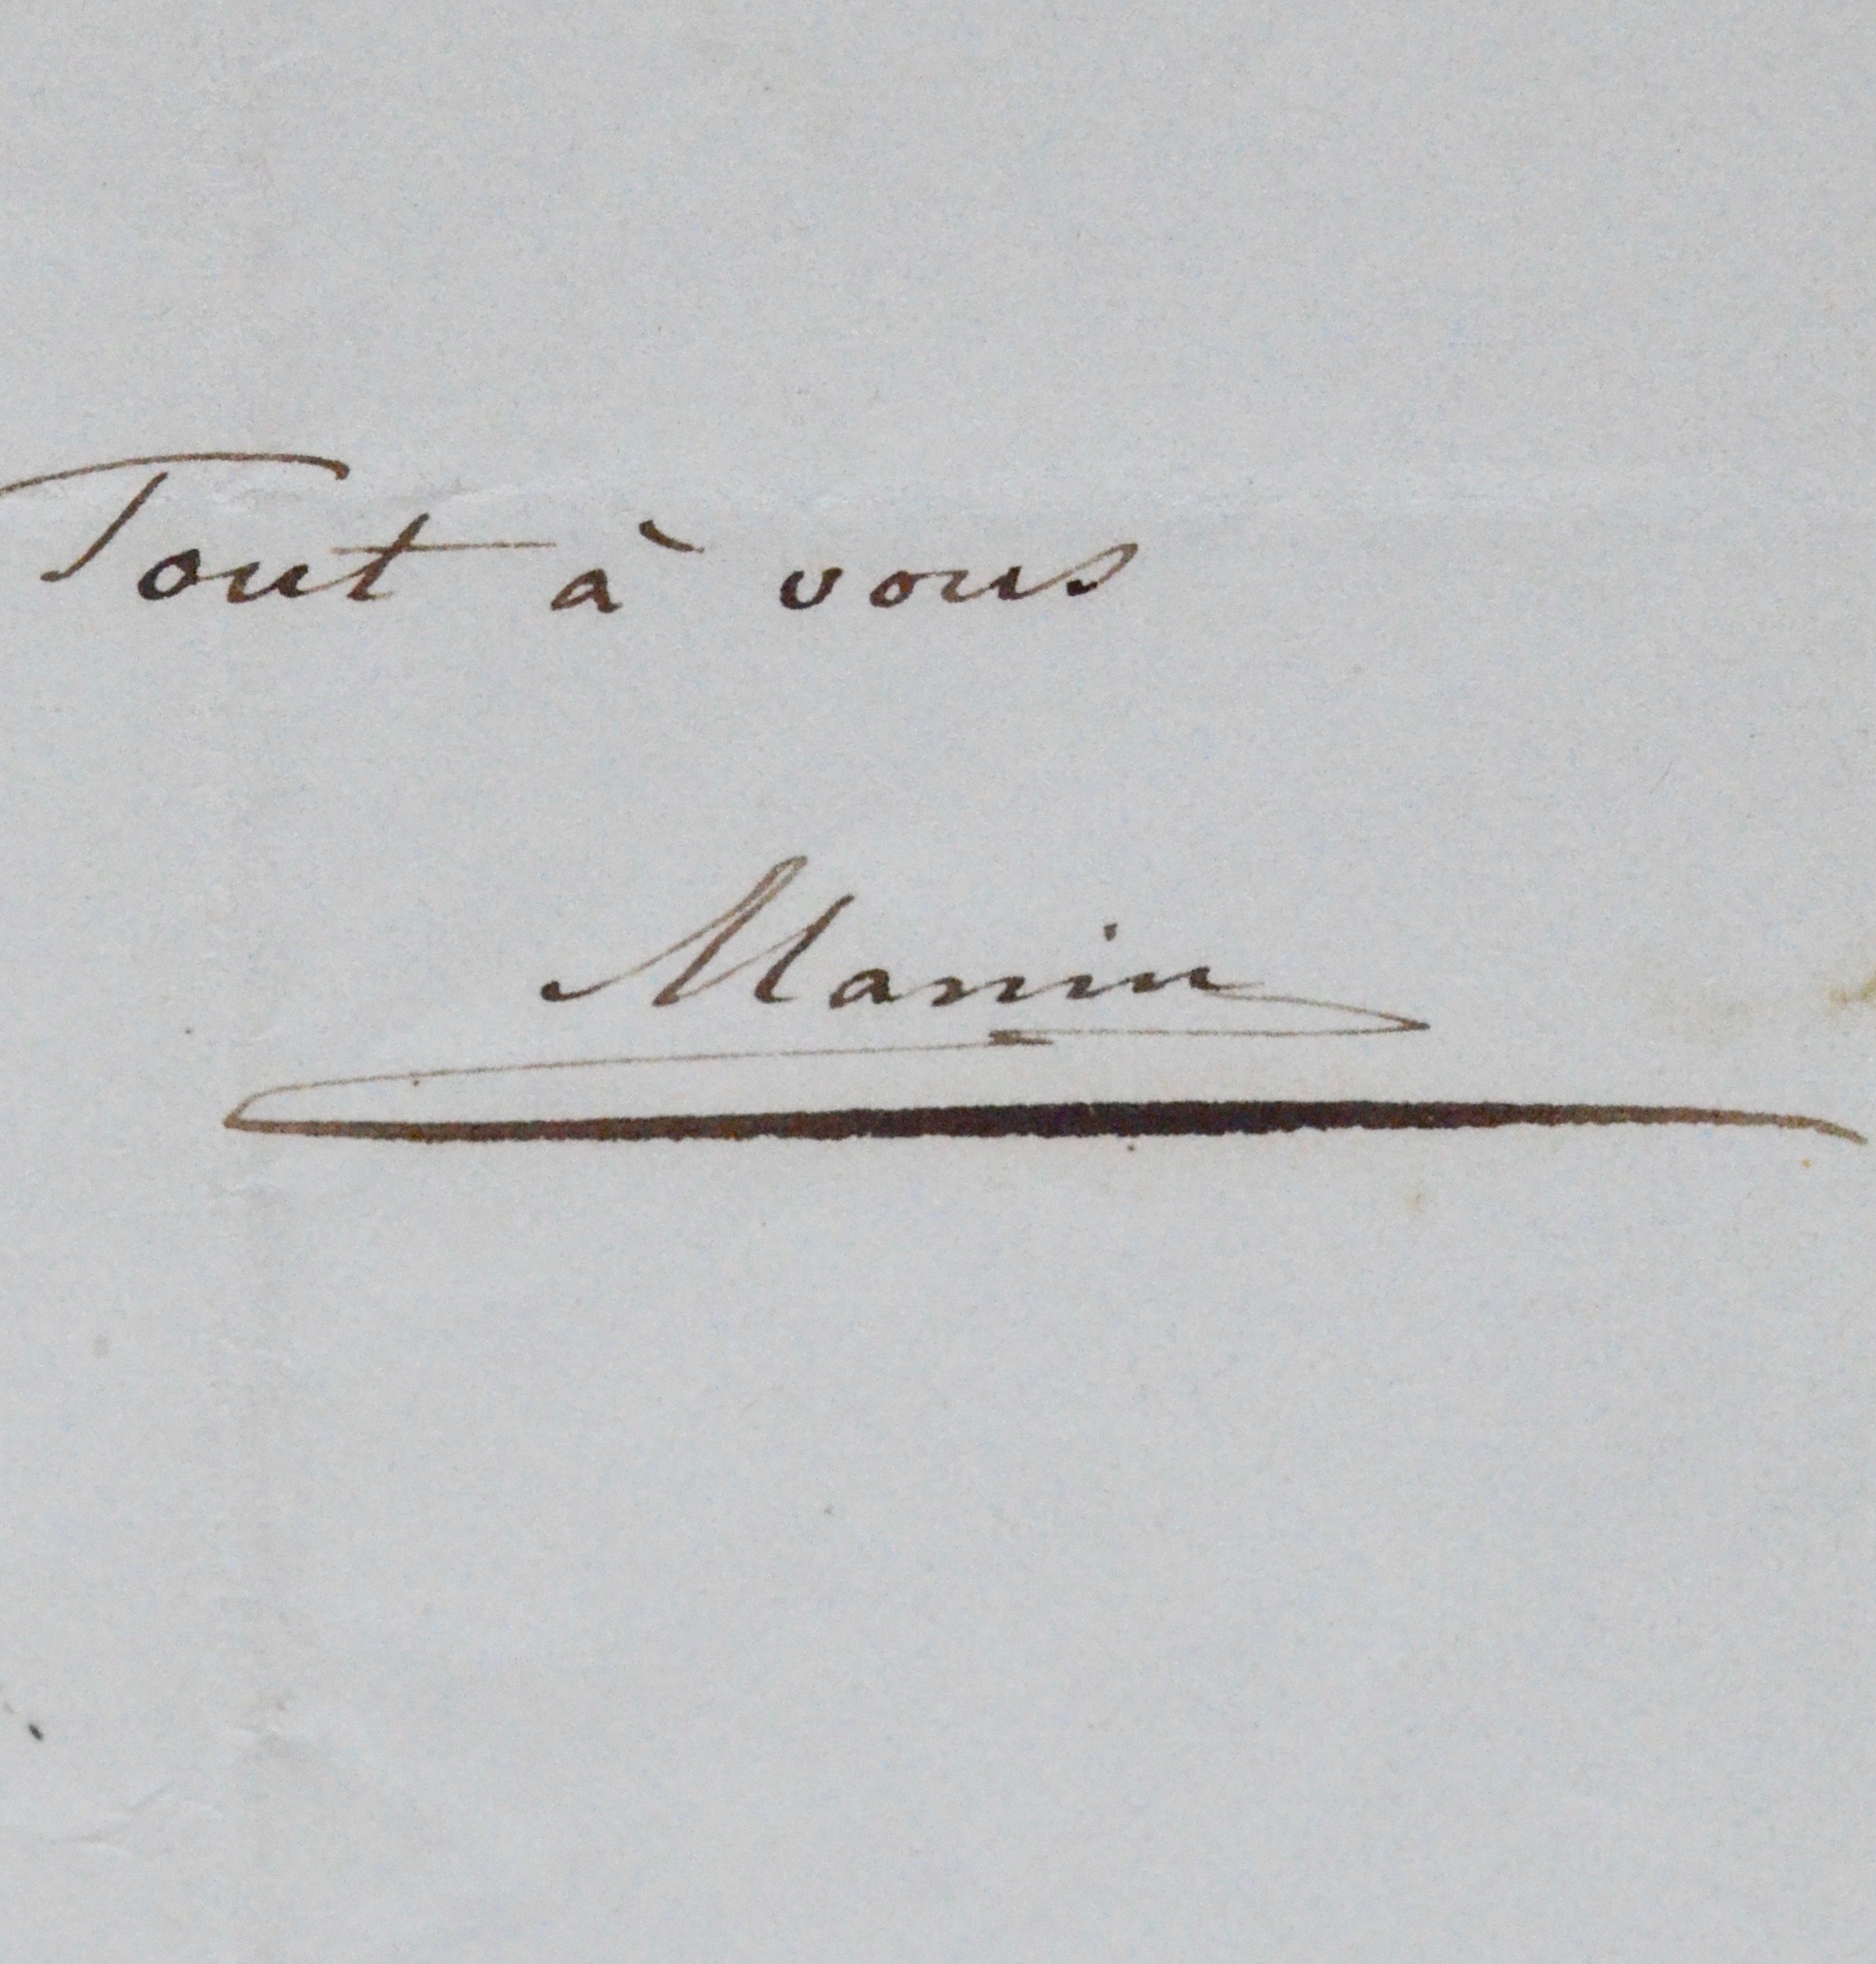 Tout à vous
Manin